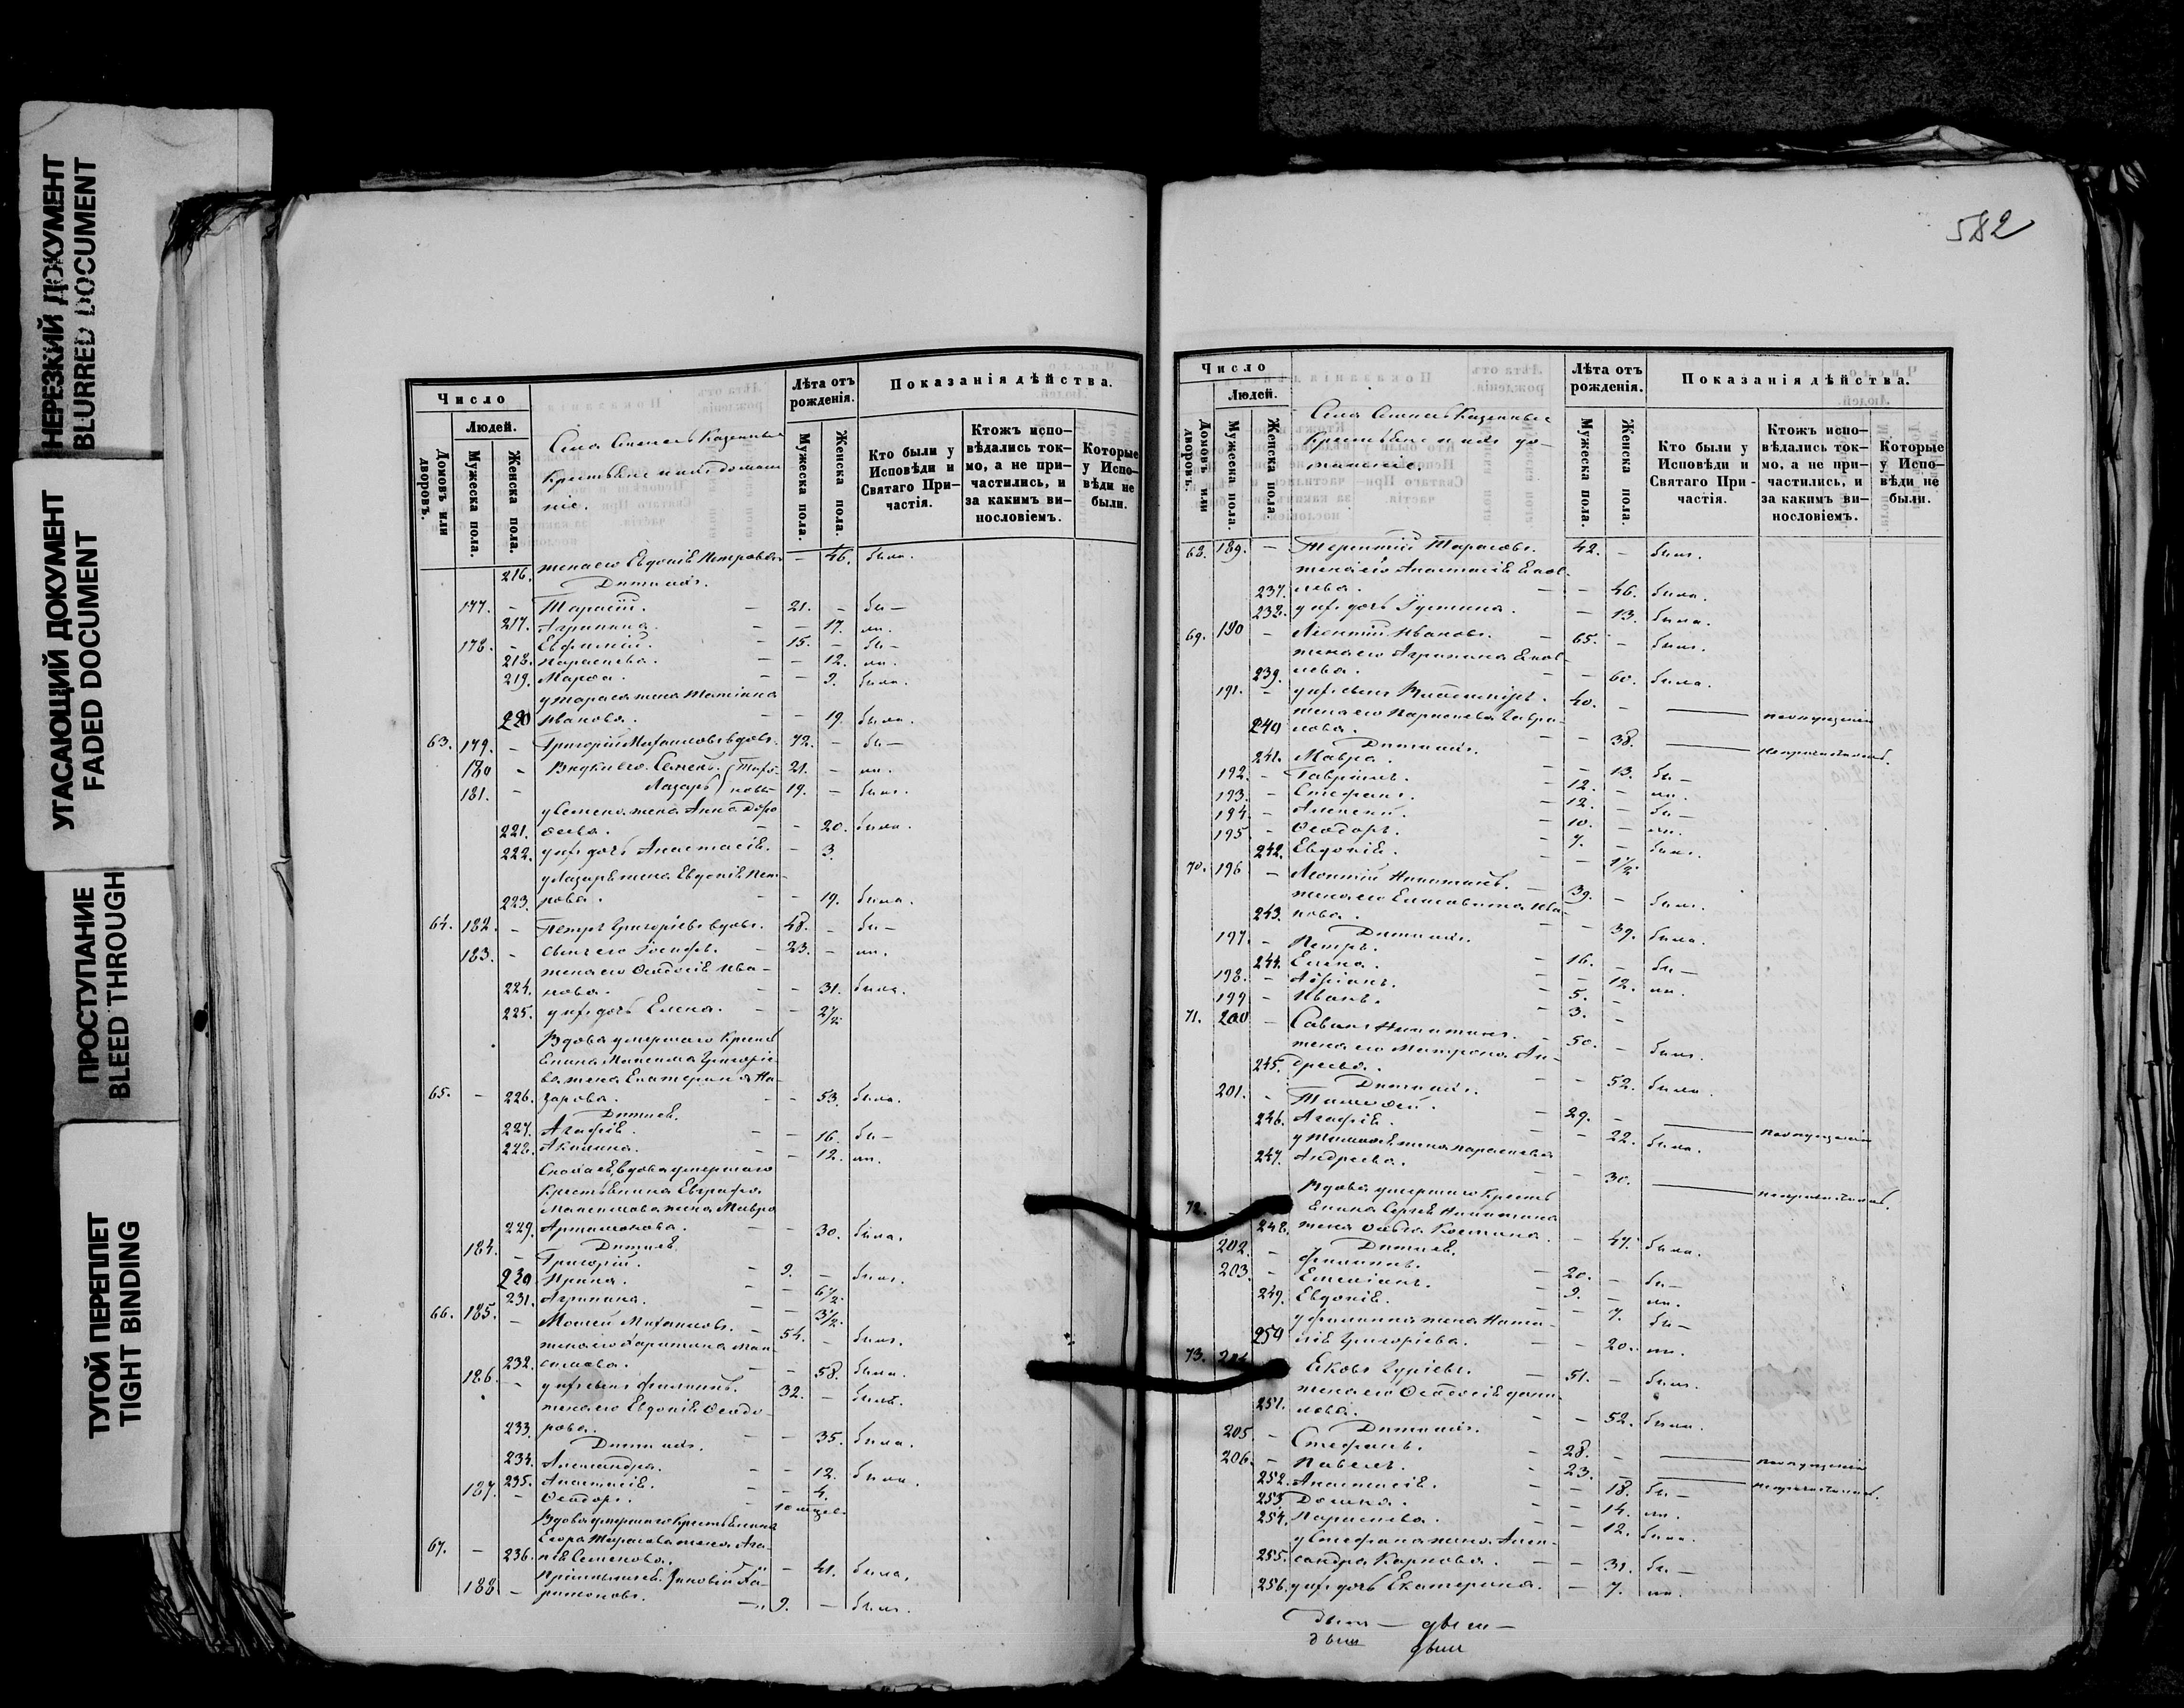 НЕРЕЗКИЙ ДОКУМЕНТ
BLURRED DOCUMENT
УГАСАЮЩИЙ ДОКУМЕНТ
FADED DOCUMENT
ПРОСТУПАНИЕ
BLEED THROUGH
ТУГОЙ ПЕРЕПЛЕТ
TIGHT BINDING
Число
Людей.
Домовъ или дворовъ.
Мужеска пола.
Женска пола.
Села Казенные
Крестьяне и ихъ домаш
ніе.
Лѣта отъ рожденія.
Мужеска пола.
Женска пола.
Показанія дѣйства.
Кто были у Исповѣди и Святаго При-частія.
Ктожъ испо-вѣдались ток-мо, а не при-частились, и за какимъ ви-нословіемъ.
Которые у Испо-вѣди не были.
216. жена его Евдокія Петрова — 46. была.
Дѣти ихъ.
177. — Тарасій. — 21. — бы—
217. Агрипина. — — 17. ли.
178. — Евфимій. — 15. — бы—
218. Параскева. — — 12. ли.
219. Марѳа. — — 9. была.
у Тараса жена Татіана
220 Иванова. — — 19. была.
63. 179. — Григорій Михайловъ вдовъ. 72. — бы—
180 — Внуки его: Семенъ. 21. — ли.
181. — Лазарь 19. — былъ.
у Семена жена Анна Доро
221. ѳеева. — — 20. была.
222. у ихъ дочь Анастасія. — 3.
у Лазаря жена Евдокія Пет-
223. рова. — — 19. была.
64. 182. — Петръ Григорьевъ вдовъ. 48. — бы—
183. — сынъ его Іосифъ. — 23. — ли.
жена его Ѳеодосія Ива-
224. нова. — — 31. была.
225. у ихъ дочь Елена. — — 2½
Вдова умершаго Кресть
янина Максима Григорье
ва жена Екатерина На-
65. — 226. зарова. — — 53. была.
Дѣти ея.
227. Агафія. — — 16. бы—
228. Акилина. — — 12. ли.
вдова умершаго
Крестьянина Евграфа
Максимова жена Мавра
229. Артамонова. — — 30. была.
Дѣти ея.
184. — Григорій. — 9. — былъ.
230 Ирина. — — 6½
231. Агрипина. — — 3½
66. 185. — Моисей Михайловъ. — 54. — былъ.
жена его Харитина Мак
232. симова. — — 58. была.
186. — у ихъ сынъ Филиппъ. 32. — былъ.
жена его Евдокія Ѳеодо-
233. рова. — — 35. была.
Дѣти ихъ.
234. Александра. — — 12. была.
235. Анастасія. — — 4.
187. — Ѳеодоръ. — 10 мцев.
Вдова умершаго Крестьянина
Егора Тарасова жена Ага-
67. — 236. пія Семенова. — — 41. была.
188 — ритоновъ. — 9. — былъ.
582
Число
Людей.
Домовъ или дворовъ.
Мужеска пола.
Женска пола.
Села Казенные
Крестьяне и ихъ до-
машніе.
Лѣта отъ рожденія.
Мужеска пола.
Женска пола.
Показанія дѣйства.
Кто были у Исповѣди и Святаго При-частія.
Ктожъ испо-вѣдались ток-мо, а не при-частились, и за какимъ ви-нословіемъ.
Которые у Испо-вѣди не были.
68. 189. — Терентій Тарасовъ. 42. — былъ.
жена его Анастасія Яков-
237. лева. — — 46. была.
238. у ихъ дочь Іустина. — 13. была.
69. 190 — Леонтій Ивановъ. — 65. — былъ.
жена его Агрипина Яков-
239. лева. — — 60. была.
191. — у ихъ сынъ 40. — — по опущенію
жена его Параскева Гаври-
240 лова. — — 38. — не причастились.
Дѣти ихъ.
241. Мавра. — — 13. бы—
192. — Гавріилъ. — 12. — ли.
193. — Стефанъ. — 12. — бы—
194. — Алексей. — 10. — ли.
195. — Ѳеодоръ. — 7. — былъ.
242. Евдокія. — — 1½
70. 196 — Леонтій Никитинъ. — 39. — былъ.
жена его Елисавета Ива-
243. нова. — — 39. была.
Дѣти ихъ.
197. — Петръ. — 16. — бы—
244. Елена. — 12. ли.
198. — Адріанъ. — 5. —
199 — Иванъ. — 3. —
71. 200 — Савинъ Никитинъ. — 50. — былъ.
жена его Матрона Ан-
245. дреева. — — 52. была.
Дѣти ихъ.
201. — Тимоѳей. — 29. — — по опущенію
246. Агафія. — — 22. была.
у Тимоѳея жена Параскева
247. Андреева. — — 30. — не причастились.
Вдова умершаго Кресть
72. — янина Сергѣя Никитина
248. жена Ѳекла Космина. — 47. была.
Дѣти ея.
202. — Филиппъ. — 20. — бы—
203. — Емеліанъ. — 9. — ли.
249. Евдокія. — — 7. бы—
у Филиппа жена Ната-
250 лія Григорьева. — — 20. ли.
73. 204 Яковъ Гуріевъ. — 51. — былъ.
жена его Ѳеодосія Дани-
251. лова. — — 52. была.
Дѣти ихъ.
205 — Стефанъ. — 28. — — по опущенію
206. — Павелъ. — 23. — — не причастились.
252. Анастасія. — — 18. бы—
253. Домна. — — 14. ли.
254. Параскева. — — 12. была.
у Стефана жена Алек-
255. сандра Карпова. — — 31. бы—
256. у ихъ дочь Екатерина. — 7. ли.